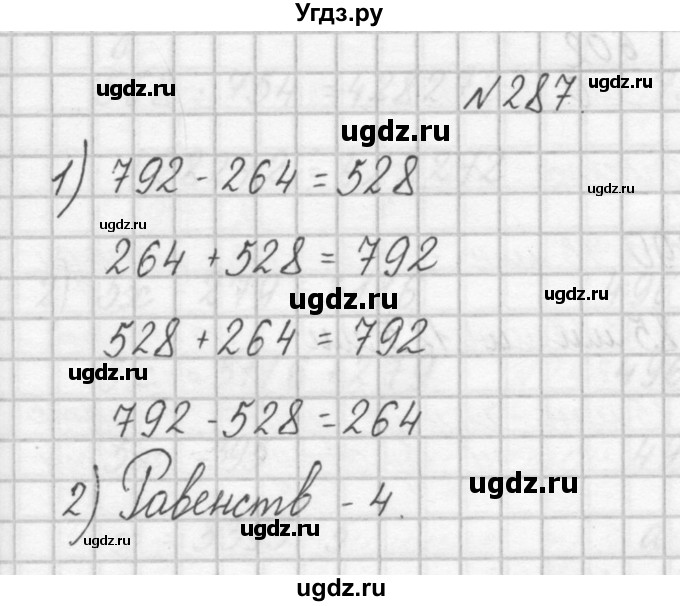 Угдз.ру
ugdz.ru
ugdz.ru
№ 287.
ugdz.ru
1) 792 - 264 = 528
ugdz.ru
ugdz.ru
264 + 528 = 792
ugdz.ru
ugdz.ru
528 + 264 = 792
ugdz.ru
792 - 528 = 264
ugdz.ru
2) Равенств - 4.
ugdz.ru
ugdz.ru
ugdz.ru